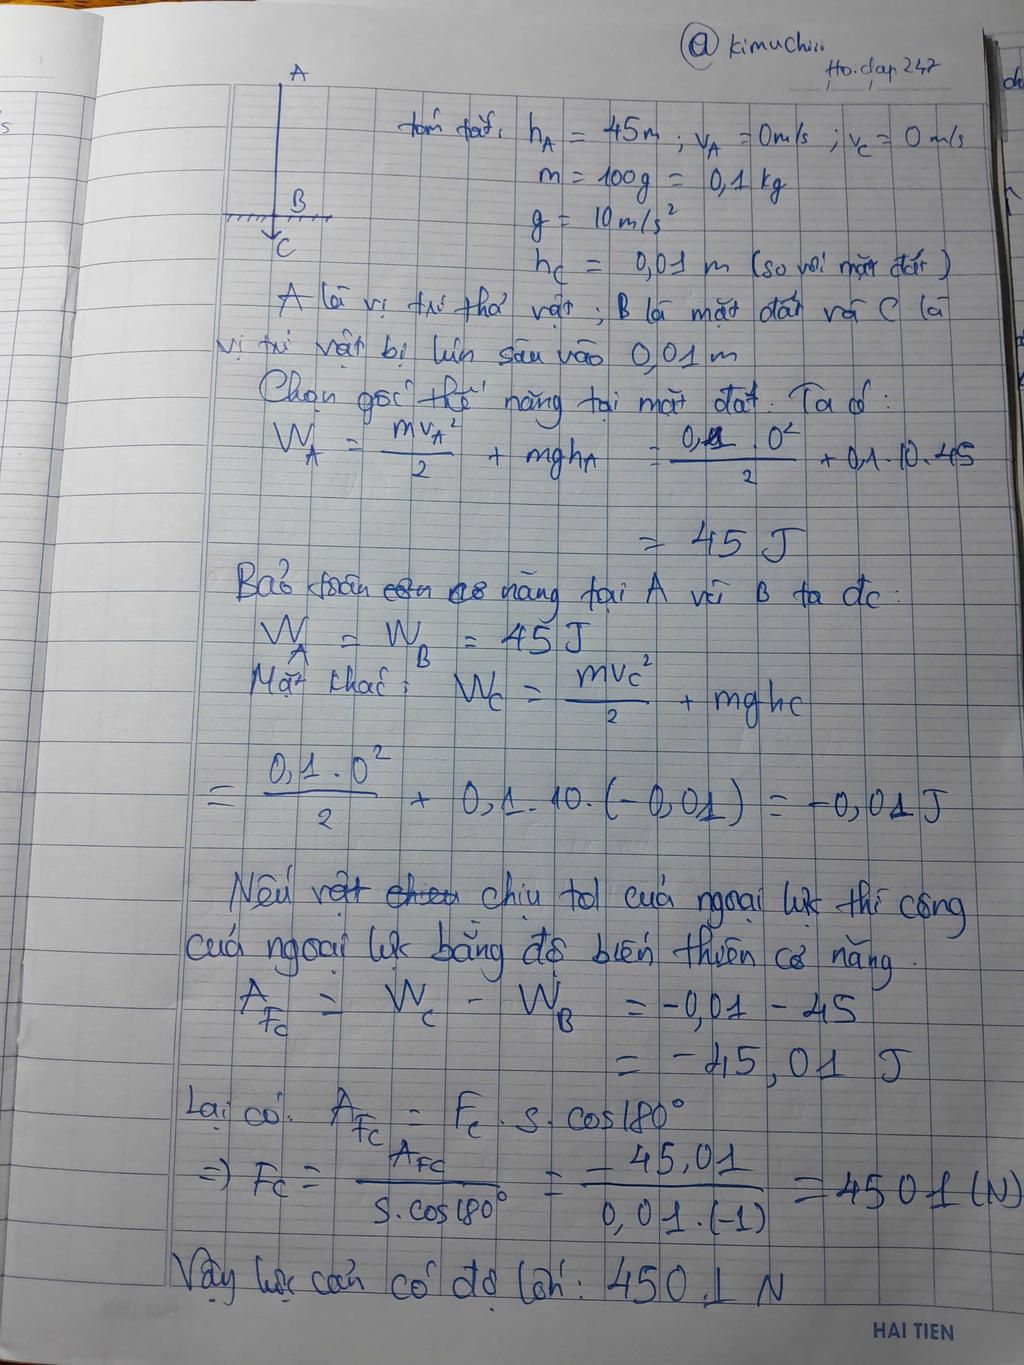 @ kimuchiii
Hoidap247
A
tóm tắt: hA = 45m ; vA = 0m/s ; vC = 0 m/s
m = 100g = 0,1 kg
B
g = 10m/s²
C
hC = 0,01 m (so với mặt đất)
A là vị trí thả vật ; B là mặt đất và C là
vị trí vật bị lún sâu vào 0,01 m
Chọn gốc thế năng tại mặt đất. Ta có:
WA = mvA²/2 + mghA = 0,1 . 0²/2 + 0,1 . 10 . 45
= 45 J
Bảo toàn cơ năng tại A về B ta đc:
WA = WB = 45 J
Mặt khác: WC = mvC²/2 + mghC
= 0,1 . 0²/2 + 0,1 . 10 . (-0,01) = -0,01 J
Nếu vật chịu td của ngoại lực thì công
của ngoại lực bằng độ biến thiên cơ năng.
AFc = WC - WB = -0,01 - 45
= -45,01 J
Lại có: AFc = Fc . s . cos180°
=> Fc = AFc/s.cos180° = -45,01/0,01.(-1) = 4501 (N)
Vậy lực cản có độ lớn: 4501 N
HAI TIEN